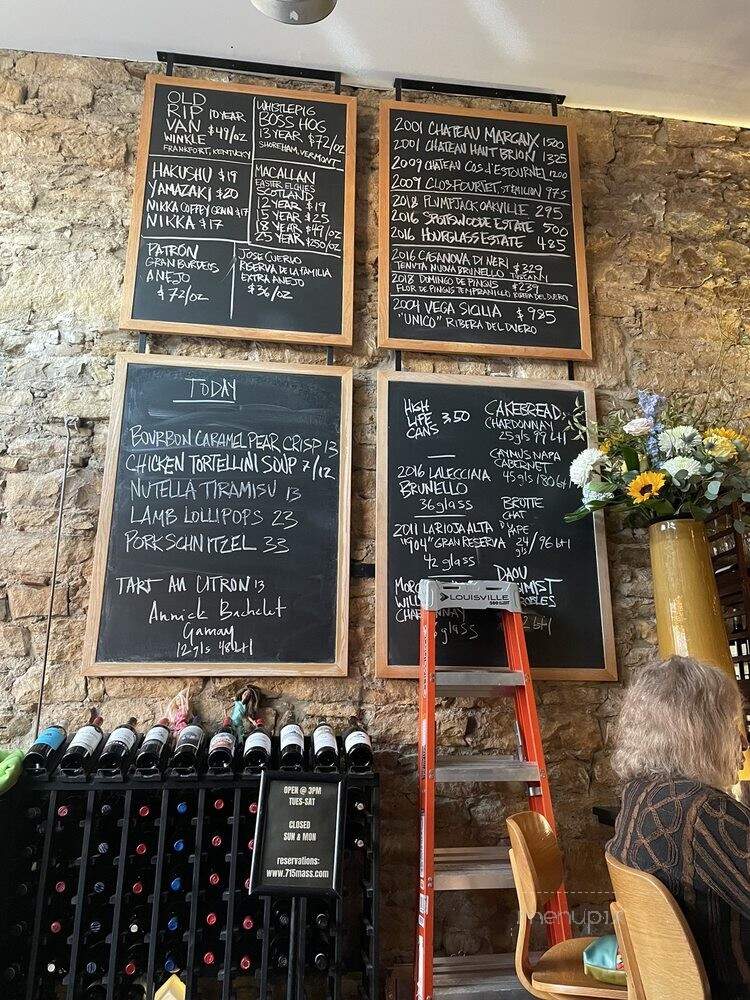 OLD
RIP 10 YEAR
VAN $49/OZ
WINKLE
FRANKFORT, KENTUCKY
WHISTLEPIG
BOSS HOG
13 YEAR $72/OZ
SHOREHAM, VERMONT
HAKUSHU $19
YAMAZAKI $20
NIKKA COFFEY GRAIN $17
NIKKA $17
MACALLAN
EASTER ELCHIES
SCOTLAND
12 YEAR $19
15 YEAR $25
18 YEAR $47/OZ
25 YEAR $250/OZ
PATRÓN
GRAN BURDEOS
ANEJO
$72/OZ
JOSE CUERVO
RESERVA DE LA FAMILIA
EXTRA ANEJO
$36/OZ
2001 CHATEAU MARGAUX 1500
2001 CHATEAU HAUT BRION 1325
2009 CHATEAU COS d'ESTOURNEL 1200
2009 CLOS FOURTET, ST. EMILION 975
2018 PLUMPJACK OAKVILLE 295
2016 SPOTTSWOODE ESTATE 500
2016 HOURGLASS ESTATE 485
2016 CASANOVA DI NERI $329
TENUTA NUOVA BRUNELLO TUSCANY
2018 DOMINGO DE PINGUS $239
FLOR DE PINGUS TEMPRANILLO RIBERA DEL DUERO
2004 VEGA SICILIA $985
"UNICO" RIBERA DEL DUERO
TODAY
BOURBON CARAMEL PEAR CRISP 13
CHICKEN TORTELLINI SOUP 7/12
NUTELLA TIRAMISU 13
LAMB LOLLIPOPS 23
PORK SCHNITZEL 33
TART AU CITRON 13
Annick Bachelet
Gamay
12gls 48btl
HIGH
LIFE 3.50
CANS
2016 LA LECCIAIA
BRUNELLO
36 glass
2011 LA RIOJA ALTA
"904" GRAN RESERVA
42 glass
CAKEBREAD
CHARDONNAY
25gls 99btl
CAYMUS NAPA
CABERNET
45gls 180btl
BROTTE
CHAT
D PAPE
24/gls 96btl
DAOU
LOUISVILLE
glass
btl
OPEN @ 3PM
TUES-SAT
CLOSED
SUN & MON
reservations:
www.715mass.com
menupix